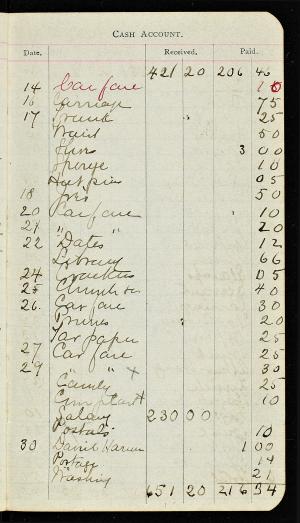 CASH ACCOUNT.
Date. Received. Paid.
421 20 206 46
14 Car fare 10
16 Carriage 75
17 Trunk 25
Waist 50
3 00
Sponge 10
Hat pins 05
18 50
20 Car fare 10
21 " " 20
22 Dates 12
Library 66
24 Crackers 05
25 Church 40
26. Car fare 30
Prunes 20
Tar paper 25
27 Car fare 25
29 " " 30
Candy 25
10
Salary 230 00
Postals 10
30 David Harum 1 00
Postage 14
Washing 21
651 20 216 34